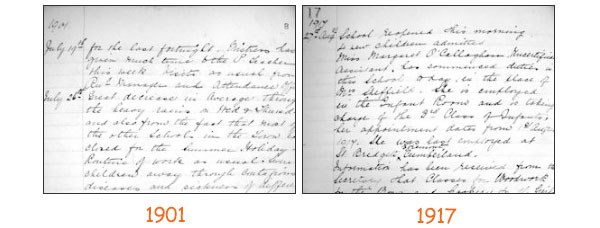 1901
July 19th for the last fortnight. Mistress has
given much time to the P. Teachers
this week. Visits as usual from
Rev. Manager and Attendance Off
July 26th Great decrease in Average through
the heavy rains on Wed & Thursd
and also from the fact that most of
the other Schools in the Town have
closed for the Summer Holiday
Routine of work as usual. Some
children away through
diseases and sickness of different
17
1917
School reopened this morning
4 new children admitted
Miss Margaret O'Callaghan Uncertificated
Assistant, has commenced duties in
this School today, in the place of
Mrs Sheffield. She is employed
in the Infant Room and is taking
charge of the 2nd Class of Infants.
Her appointment dates from 1st August
1917. She was last employed at
St Bridget's Egremont Cumberland.
Information has been received from the
Secretary that Classes for Woodwork
1901
1917